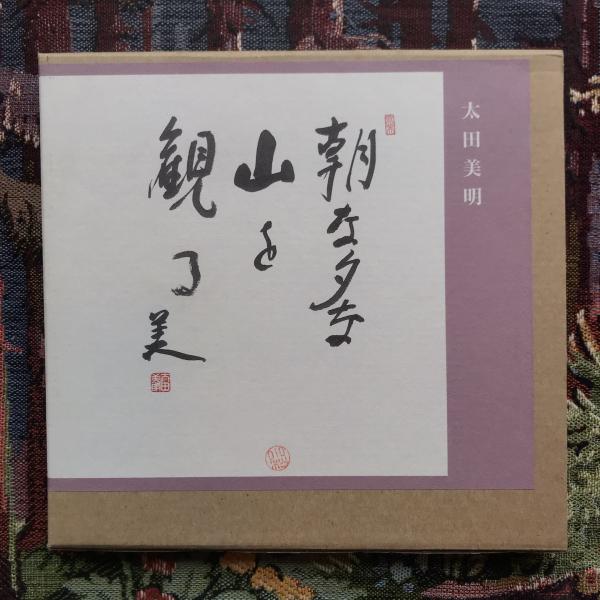 太田美明
朝な夕な
山を
観る
美